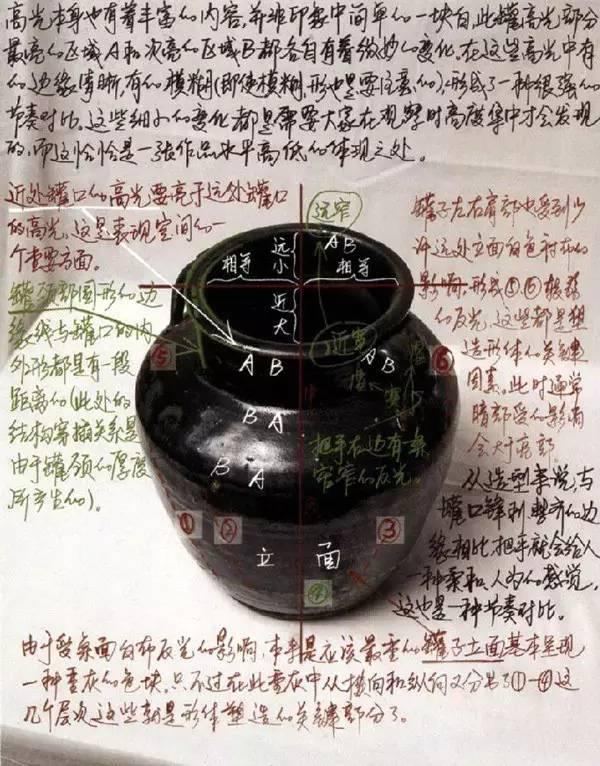 高光本身也有着丰富的内容,并非印象中简单的一块白,此罐高光部分
最亮的区域A和次亮的区域B都各自有着微妙的变化。在这些高光中有
的边缘清晰,有的模糊(即使模糊,形也是要注意的),形成了一种很强的
节奏对比。这些细小的变化都是需要大家在观察时高度集中才会发现
的,而这恰恰是一张作品水平高低的体现之处。
近处罐口的高光要亮于远处罐口
的高光,这是表现空间的一
个重要方面。
罐颈部圆形的边
缘线与罐口的内
外形都是有一段
距离的(此处的
结构穿插关系是
由于罐颈的厚度
所产生的)。
远窄
A B
远小
相等
相等
近大
近宽
A B
A B
B A
B A
把手在这有一条
窄窄的反光。
⑤
⑥
①
②
③
④
立 面
罐子左右肩部也受到少
许远处立面白色衬布的
影响,形成⑤⑥板块
的反光,这些都是塑
造形体的关键
因素。此时通常
暗部受的影响
会大于亮部。
从造型来说,与
罐口锋利整齐的边
缘相比,把手就会给人
一种柔和、人为的感觉,
这也是一种节奏对比。
由于受桌面白布反光的影响,本来是应该最重的罐子立面基本呈现
一种重灰的色块。只不过在此重灰中从横向和纵向又分出了①-④这
几个层次,这些都是形体塑造的关键部分了。